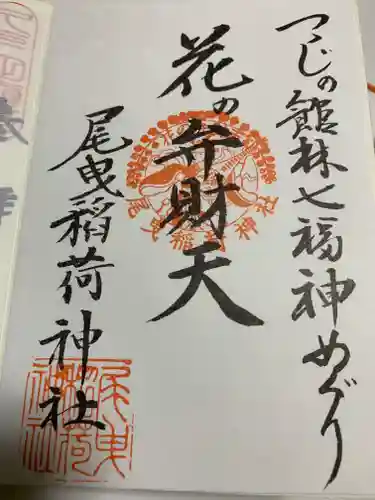 つつじの館林七福神めぐり
花の弁財天
尾曳稲荷神社
尾曳稲荷神社